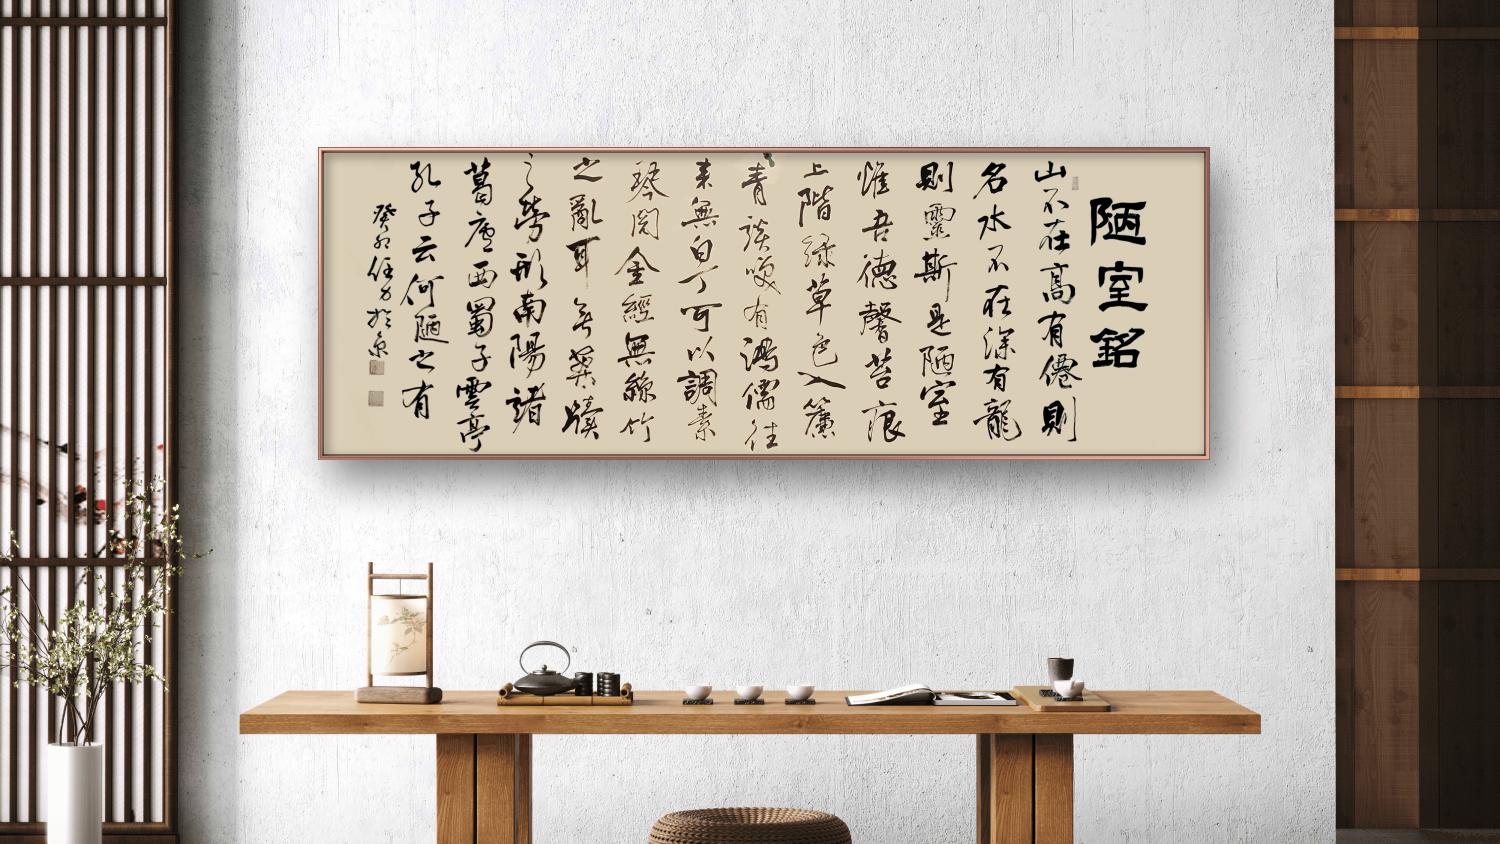 陋室銘
山不在高有僊則
名水不在深有龍
則靈斯是陋室
惟吾德馨苔痕
上階緑草色入簾
青談唉有鴻儒往
来無白丁可以調素
琴閱金經無絲竹
之亂耳無案牘
之勞形南陽諸
葛廬西蜀子雲亭
孔子云何陋之有
癸卯任力於京